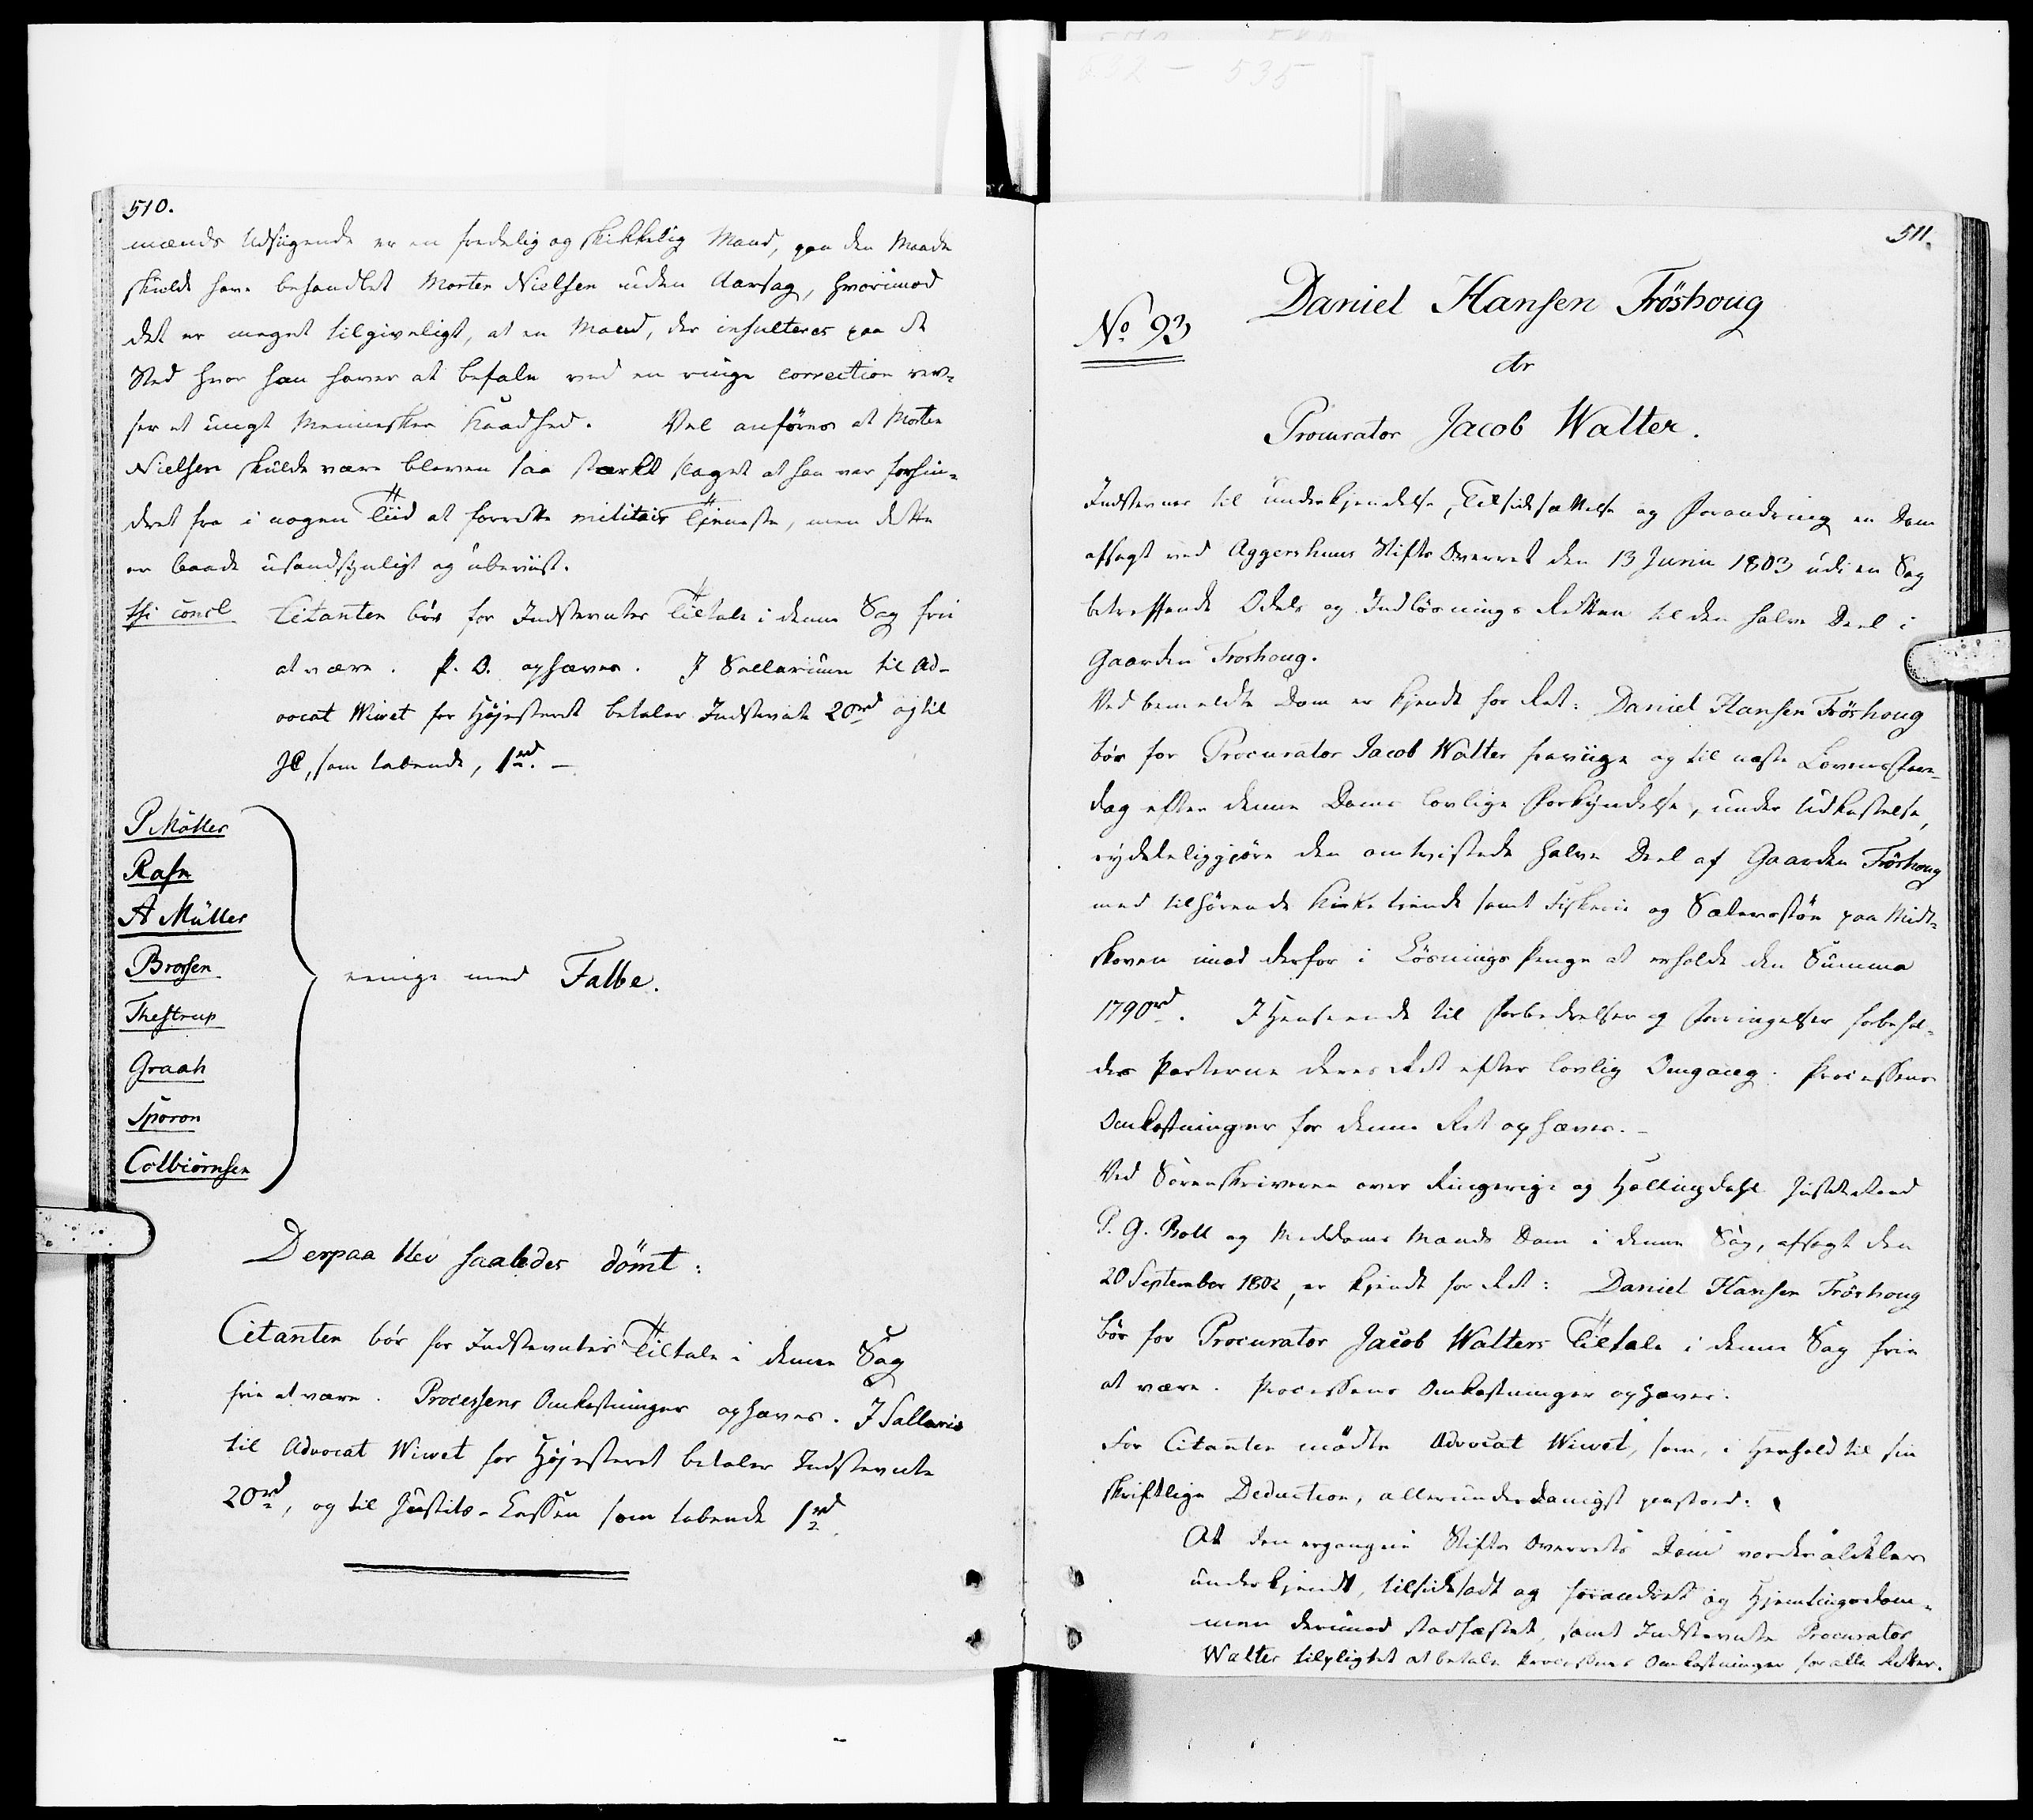 510.
mænds Udsigende er en fredelig og skikkelig Mand, paa den Maade
skulde have behandlet Morten Nielsen uden Aarsag, hvorimod
det er meget tilgiveligt, at en Mand, der insulteres paa et
Sted hvor han haver at befale ved en ringe correction rev-
ser et ungt Menneskes Kaadhed. Vel anføres at Morten
Nielsen skulde være bleven saa stærkt slaget at han var forhin-
dret fra i nogen Tiid at forrette militair Tjeneste, men dette
er baade usandsynligt og ubeviist.
thi concl Citanten bør for Indstevntes Tiltale i denne Sag frie
at være. P. O. ophæves. I Sallarium til Ad-
vocat Wivet for Højesteret betaler Indstevnte 20rd og til
JC, som tabende, 1/2rd. —
P Möller
Rafn
A Müller
Brorsen
Thestrup
Graah
Sporon
Colbiörnsen
eenige med Falbe.
Derpaa blev saaledes dömt:
Citanten bör for Indstevntes Tiltale i denne Sag
frie at være. Processens Omkostninger ophæves. I Sallario
til Advocat Wivet for Højesteret betaler Indstevnte
20rd, og til Justits-Cassen som tabende 1/2rd.
511.
No 93
Daniel Hansen Fröshoug
ctr
Procurator Jacob Walter.
Indstevner til Underkjendelse, Tilsidesættelse og Forandring en Dom
afsagt ved Aggershuus Stifts Overret den 13 Junii 1803 udi en Sag
betreffende Odels og Indløsnings Retten til den halve Deel i
Gaarden Froshoug.
Ved bemeldte Dom er kjendt for Ret: Daniel Hansen Fröshoug
bör for Procurator Jacob Walter fravige og til næste Lovens Fare-
dag efter denne Doms lovlige Forkyndelse, under Udkastelse,
ryddeliggjøre den omtvistede halve Deel af Gaarden Fröshoug
med tilhørende Kirke tiende samt Fiskerie og Sæterstøe paa Midt-
skoven imod derfor i Løsnings Penge at erholde den Summa
1790rd. I Henseende til Forbedrelser og Forringelser forbehol-
des Parterne deres Ret efter lovlig Omgang. Processens
Omkostninger for denne Ret ophæves. –
Ved Sorenskriveren over Ringerige og Hallingdahl Justitsraad
P. G. Boll og Meddoms Mænds Dom i denne Sag, afsagt den
20 September 1802, er kjendt for Ret: Daniel Hansen Fröshoug
bör for Procurator Jacob Walters Tiltale i denne Sag frie
at være. Processens Omkostninger ophæves.
For Citanten mødte Advocat Wivet, som, i Henhold til sin
skriftlige Deduction, allerunderdanigst paastod:
At den ergangne Stifts Overrets Dom vorder aldeles
underkjendt, tilsidesadt og forandret og Hjemtingsdom-
men derimod stadfæstet, samt Indstevnte Procurator
Walter tilpligtet at betale Processens Omkostninger for alle Retter.